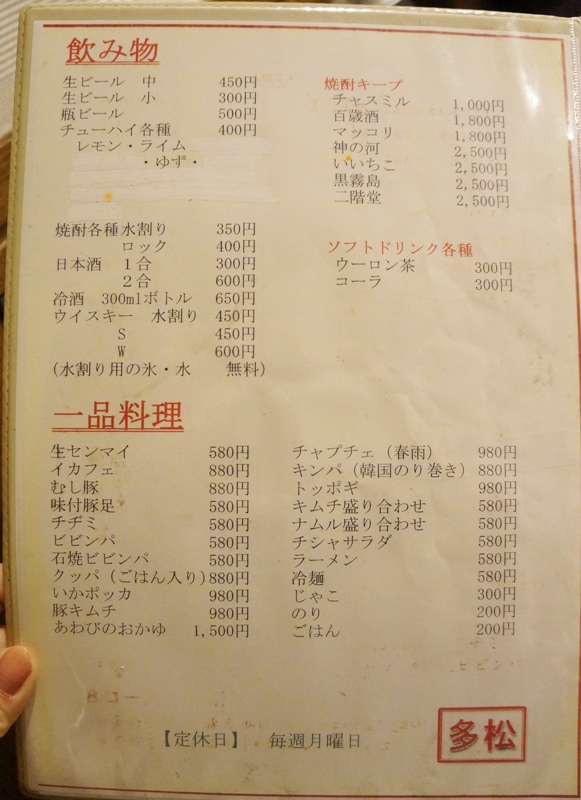 飲み物
生ビール 中 450円
生ビール 小 300円
瓶ビール 500円
チューハイ各種 400円
レモン・ライム
・ゆず・
焼酎各種水割り 350円
ロック 400円
日本酒 1合 300円
2合 600円
冷酒 300mlボトル 650円
ウイスキー 水割り 450円
S 450円
W 600円
(水割り用の氷・水 無料)
焼酎キープ
チャスミル 1,000円
百歳酒 1,800円
マッコリ 1,800円
神の河 2,500円
いいちこ 2,500円
黒霧島 2,500円
二階堂 2,500円
ソフトドリンク各種
ウーロン茶 300円
コーラ 300円
一品料理
生センマイ 580円
イカフェ 880円
むし豚 880円
味付豚足 580円
チヂミ 580円
ビビンパ 580円
石焼ビビンパ 580円
クッパ(ごはん入り) 880円
いかポッカ 980円
豚キムチ 980円
あわびのおかゆ 1,500円
チャプチェ(春雨) 980円
キンパ(韓国のり巻き) 880円
トッポギ 980円
キムチ盛り合わせ 580円
ナムル盛り合わせ 580円
チシャサラダ 580円
ラーメン 580円
冷麺 580円
じゃこ 300円
のり 200円
ごはん 200円
【定休日】 毎週月曜日
多松